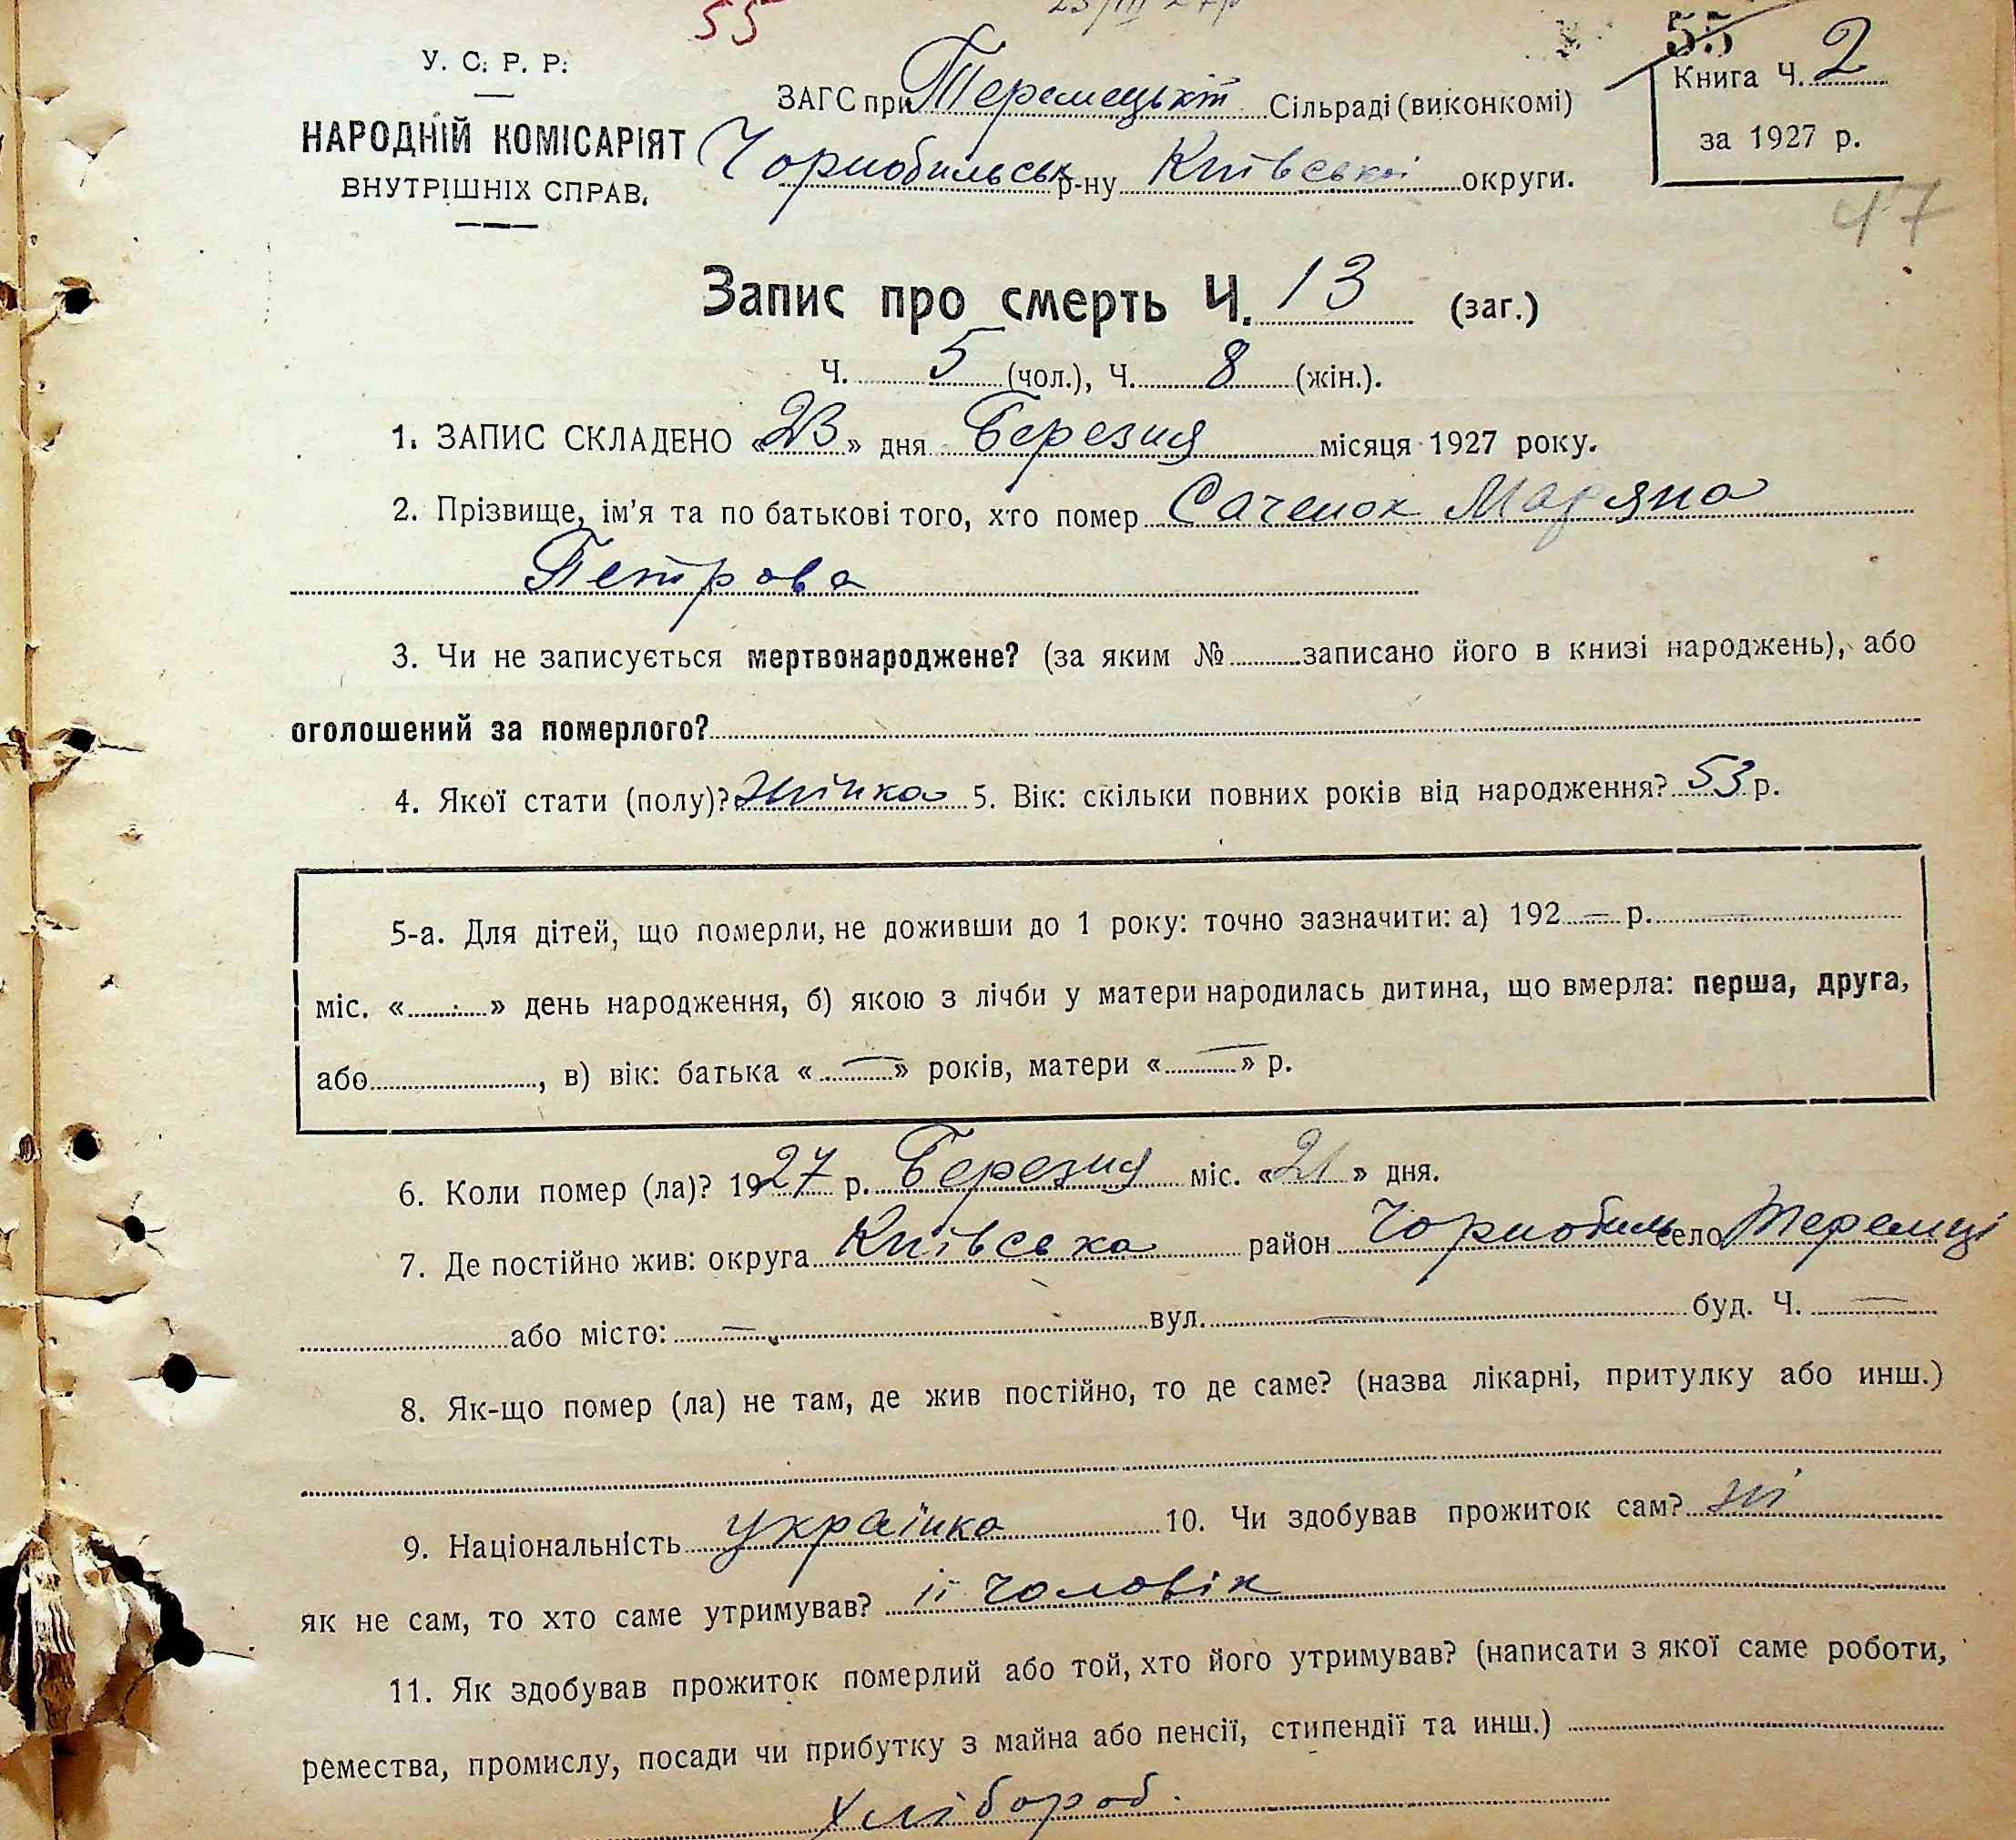 55
55
У. С. Р. Р.
НАРОДНІЙ КОМІСАРІЯТ
ВНУТРІШНІХ СПРАВ.
ЗАГС при Теремецькій Сільраді (виконкомі)
Чорнобильськ р-ну Київської округи.
Книга Ч. 2
за 1927 р.
47
Запис про смерть Ч. 13 (заг.)
Ч. 5 (чол.), Ч. 8 (жін.).
1. ЗАПИС СКЛАДЕНО «23» дня Березня місяця 1927 року.
2. Прізвище, ім'я та по батькові того, хто помер Саченок Маряна
Петрова
3. Чи не записується мертвонароджене? (за яким № записано його в книзі народжень), або
оголошений за померлого?
4. Якої стати (полу)? жінка 5. Вік: скільки повних років від народження? 53 р.
5-а. Для дітей, що померли, не доживши до 1 року: точно зазначити: а) 192 — р. —
міс. « » день народження, б) якою з лічби у матери народилась дитина, що вмерла: перша, друга,
або , в) вік: батька « — » років, матери « — » р.
6. Коли помер (ла)? 1927 р. Березня міс. «21» дня.
7. Де постійно жив: округа Київська район Чорнобиль село Теремці
або місто: — вул. — буд. Ч. —
8. Як-що помер (ла) не там, де жив постійно, то де саме? (назва лікарні, притулку або инш.)
9. Національність українка 10. Чи здобував прожиток сам? ні
як не сам, то хто саме утримував? її чоловік
11. Як здобував прожиток померлий або той, хто його утримував? (написати з якої саме роботи,
ремества, промислу, посади чи прибутку з майна або пенсії, стипендії та инш.)
Хлібороб.